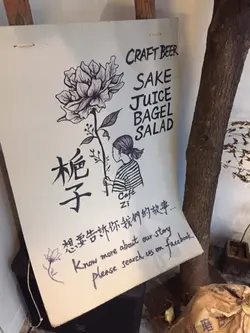 CRAFT BEER
SAKE
JUICE
BAGEL
SALAD
梔子
Cafe
Zi
想要告訴你我們的故事...
Know more about our story
please search us on facebook